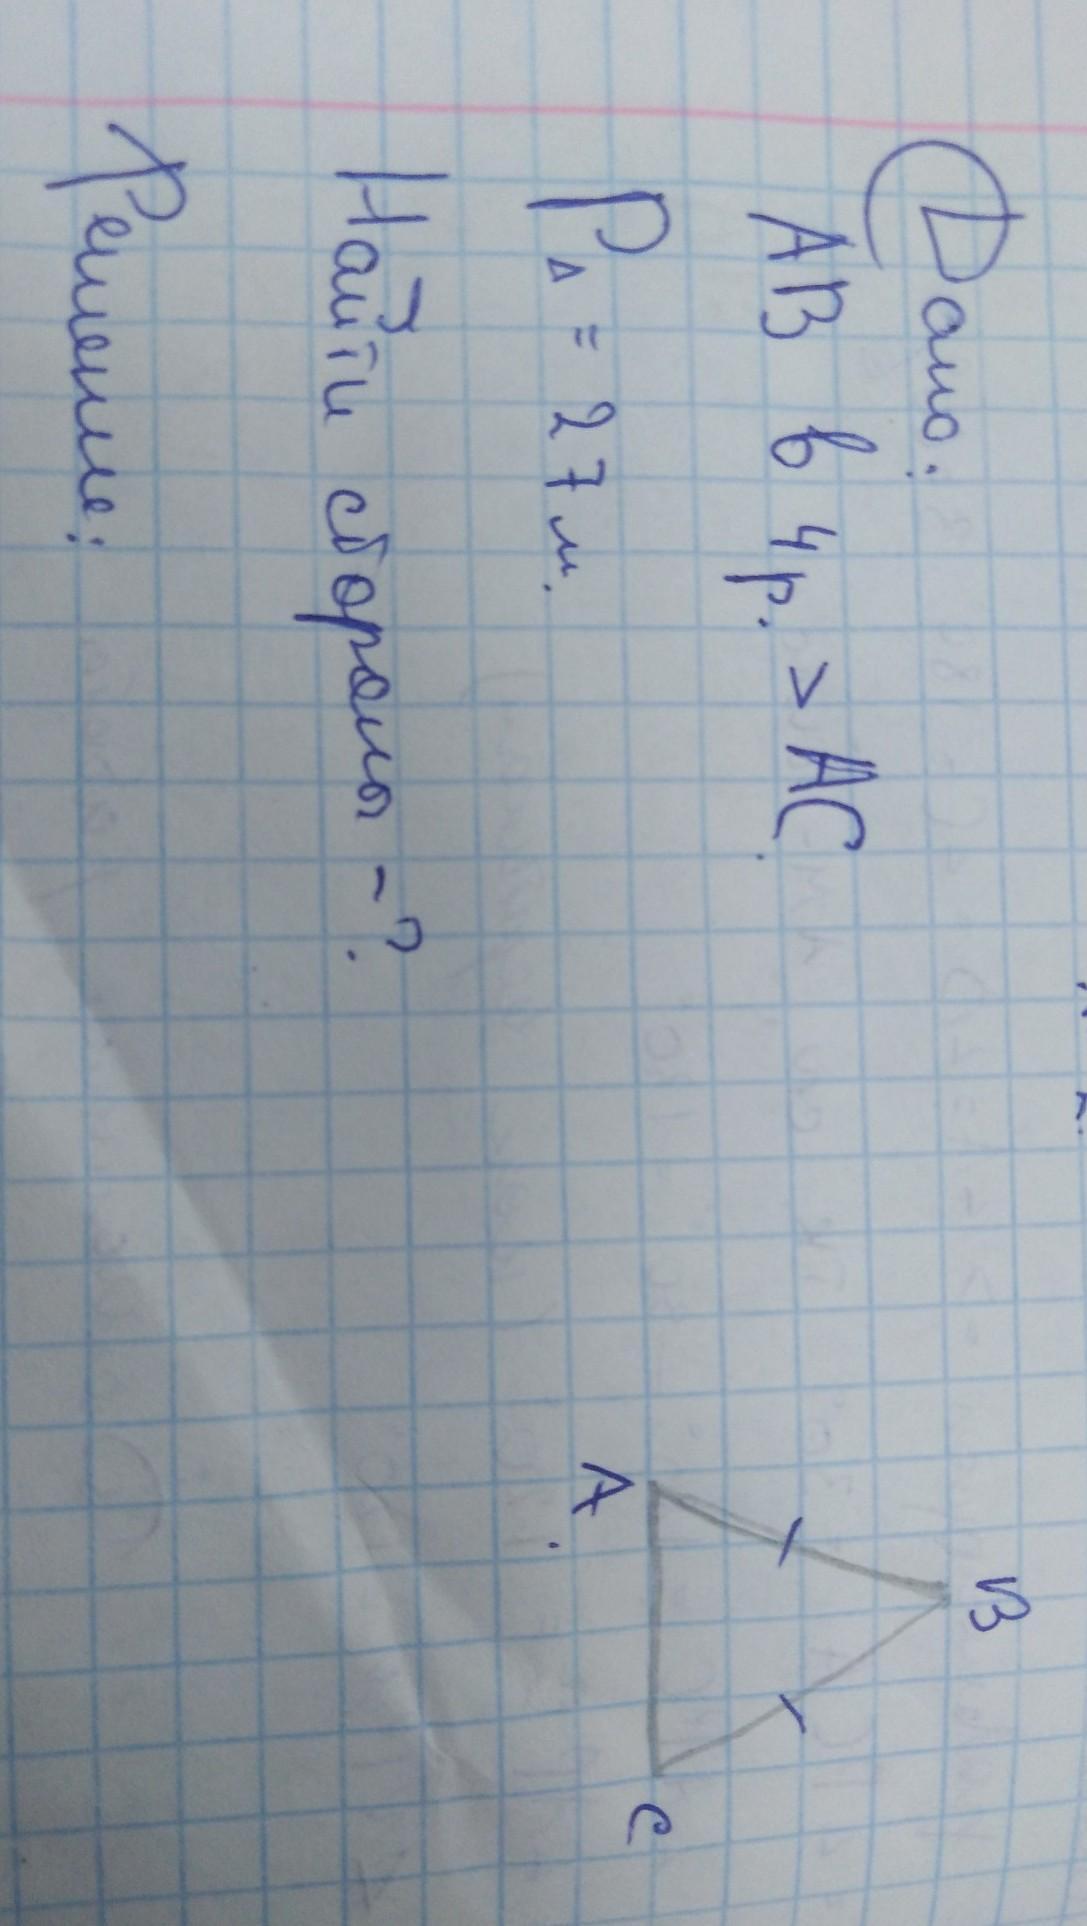 Дано:
AB в 4р. > AC
P△ = 27 м.
Найти стороны - ?
Решение:
B
A
C